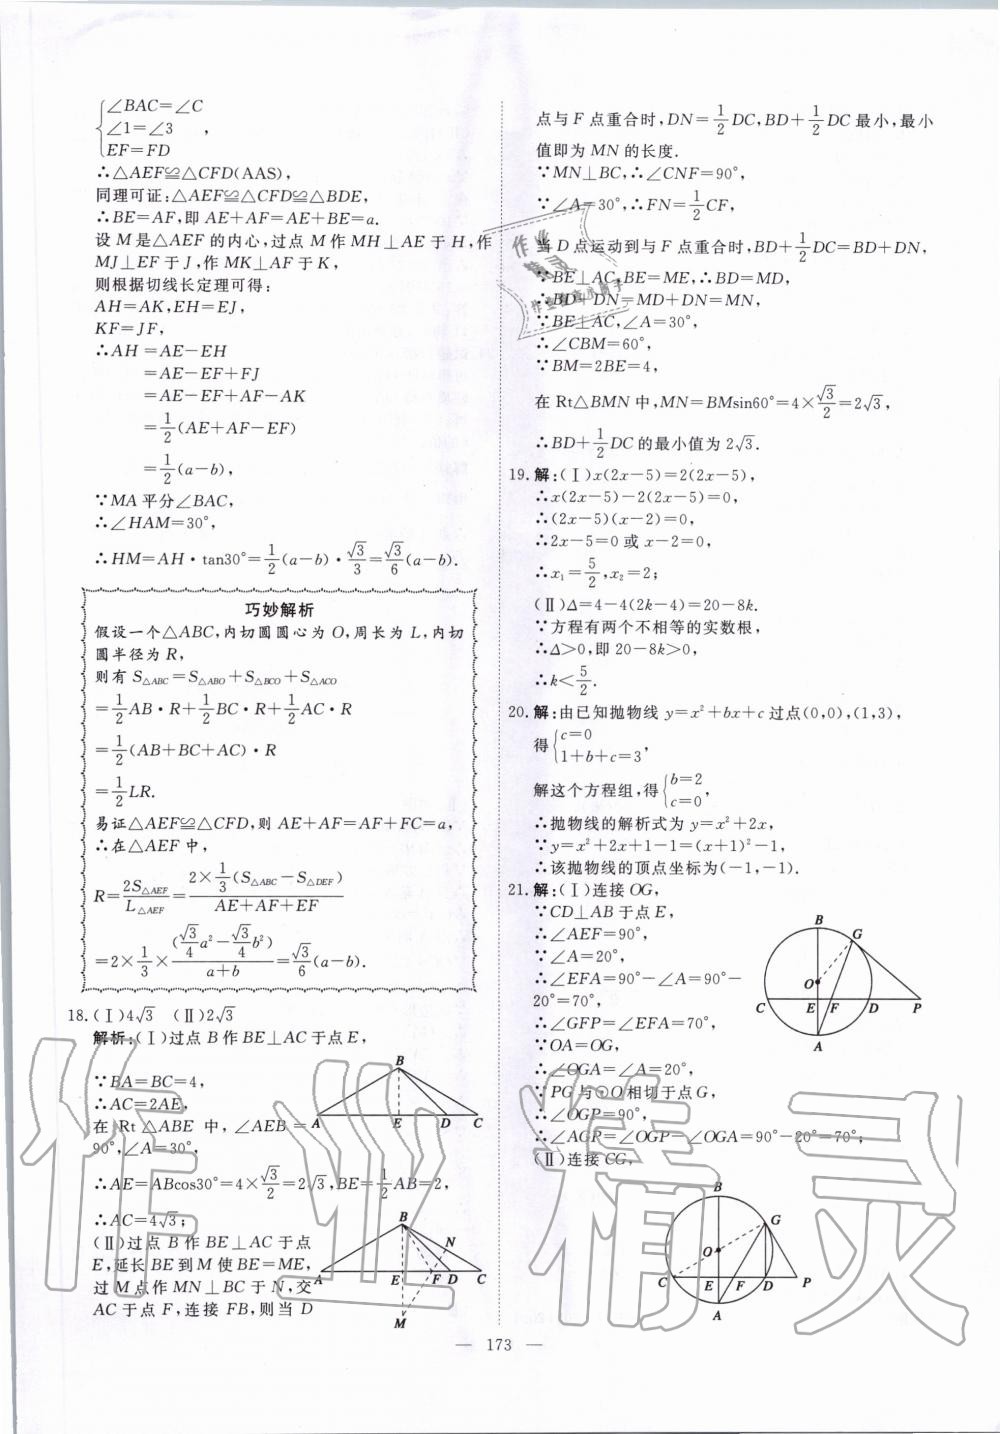 ∠BAC=∠C
∠1=∠3 ,
EF=FD
∴△AEF≌△CFD(AAS),
同理可证:△AEF≌△CFD≌△BDE,
∴BE=AF,即 AE+AF=AE+BE=a.
设 M 是△AEF 的内心,过点 M 作 MH⊥AE 于 H,作
MJ⊥EF 于 J,作 MK⊥AF 于 K,
则根据切线长定理可得:
AH=AK,EH=EJ,
KF=JF,
∴AH =AE-EH
=AE-EF+FJ
=AE-EF+AF-AK
=1/2(AE+AF-EF)
=1/2(a-b),
∵MA 平分∠BAC,
∴∠HAM=30°,
∴HM=AH·tan30°=1/2(a-b)·√3/3=√3/6(a-b).
巧妙解析
假设一个△ABC,内切圆圆心为 O,周长为 L,内切
圆半径为 R,
则有 S△ABC=S△ABO+S△BCO+S△ACO
=1/2AB·R+1/2BC·R+1/2AC·R
=1/2(AB+BC+AC)·R
=1/2LR.
易证△AEF≌△CFD,则 AE+AF=AF+FC=a,
∴在△AEF 中,
R=2S△AEF/L△AEF=2×1/3(S△ABC-S△DEF)/(AE+AF+EF)
=2×1/3×(√3/4a²-√3/4b²)/(a+b)=√3/6(a-b).
18.(Ⅰ)4√3 (Ⅱ)2√3
解析:(Ⅰ)过点 B 作 BE⊥AC 于点 E,
∵BA=BC=4,
∴AC=2AE,
在 Rt△ABE 中,∠AEB=
90°,∠A=30°,
∴AE=ABcos30°=4×√3/2=2√3,BE=1/2AB=2,
∴AC=4√3;
(Ⅱ)过点 B 作 BE⊥AC 于点
E,延长 BE 到 M 使 BE=ME,
过 M 点作 MN⊥BC 于 N,交
AC 于点 F,连接 FB,则当 D
B
A E D C
B
N
A E F D C
M
点与 F 点重合时,DN=1/2DC,BD+1/2DC 最小,最小
值即为 MN 的长度.
∵MN⊥BC,∴∠CNF=90°,
∵∠A=30°,∴FN=1/2CF,
当 D 点运动到与 F 点重合时,BD+1/2DC=BD+DN,
∵BE⊥AC,BE=ME,∴BD=MD,
∴BD+DN=MD+DN=MN,
∵BE⊥AC,∠A=30°,
∴∠CBM=60°,
∵BM=2BE=4,
在 Rt△BMN 中,MN=BMsin60°=4×√3/2=2√3,
∴BD+1/2DC 的最小值为 2√3.
19.解:(Ⅰ)x(2x-5)=2(2x-5),
∴x(2x-5)-2(2x-5)=0,
∴(2x-5)(x-2)=0,
∴2x-5=0 或 x-2=0,
∴x₁=5/2,x₂=2;
(Ⅱ)Δ=4-4(2k-4)=20-8k.
∵方程有两个不相等的实数根,
∴Δ>0,即 20-8k>0,
∴k<5/2.
20.解:由已知抛物线 y=x²+bx+c 过点(0,0),(1,3),
得{c=0
1+b+c=3,
解这个方程组,得{b=2
c=0,
∴抛物线的解析式为 y=x²+2x,
∵y=x²+2x+1-1=(x+1)²-1,
∴该抛物线的顶点坐标为(-1,-1).
21.解:(Ⅰ)连接 OG,
∵CD⊥AB 于点 E,
∴∠AEF=90°,
∵∠A=20°,
∴∠EFA=90°-∠A=90°-
20°=70°,
∴∠GFP=∠EFA=70°,
∵OA=OG,
∴∠OGA=∠A=20°,
∵PG 与⊙O 相切于点 G,
∴∠OGP=90°,
∴∠AGP=∠OGP-∠OGA=90°-20°=70°;
(Ⅱ)连接 CG,
B
G
O
C E F D P
A
B
G
O
C E F D P
A
作业精灵
— 173 —